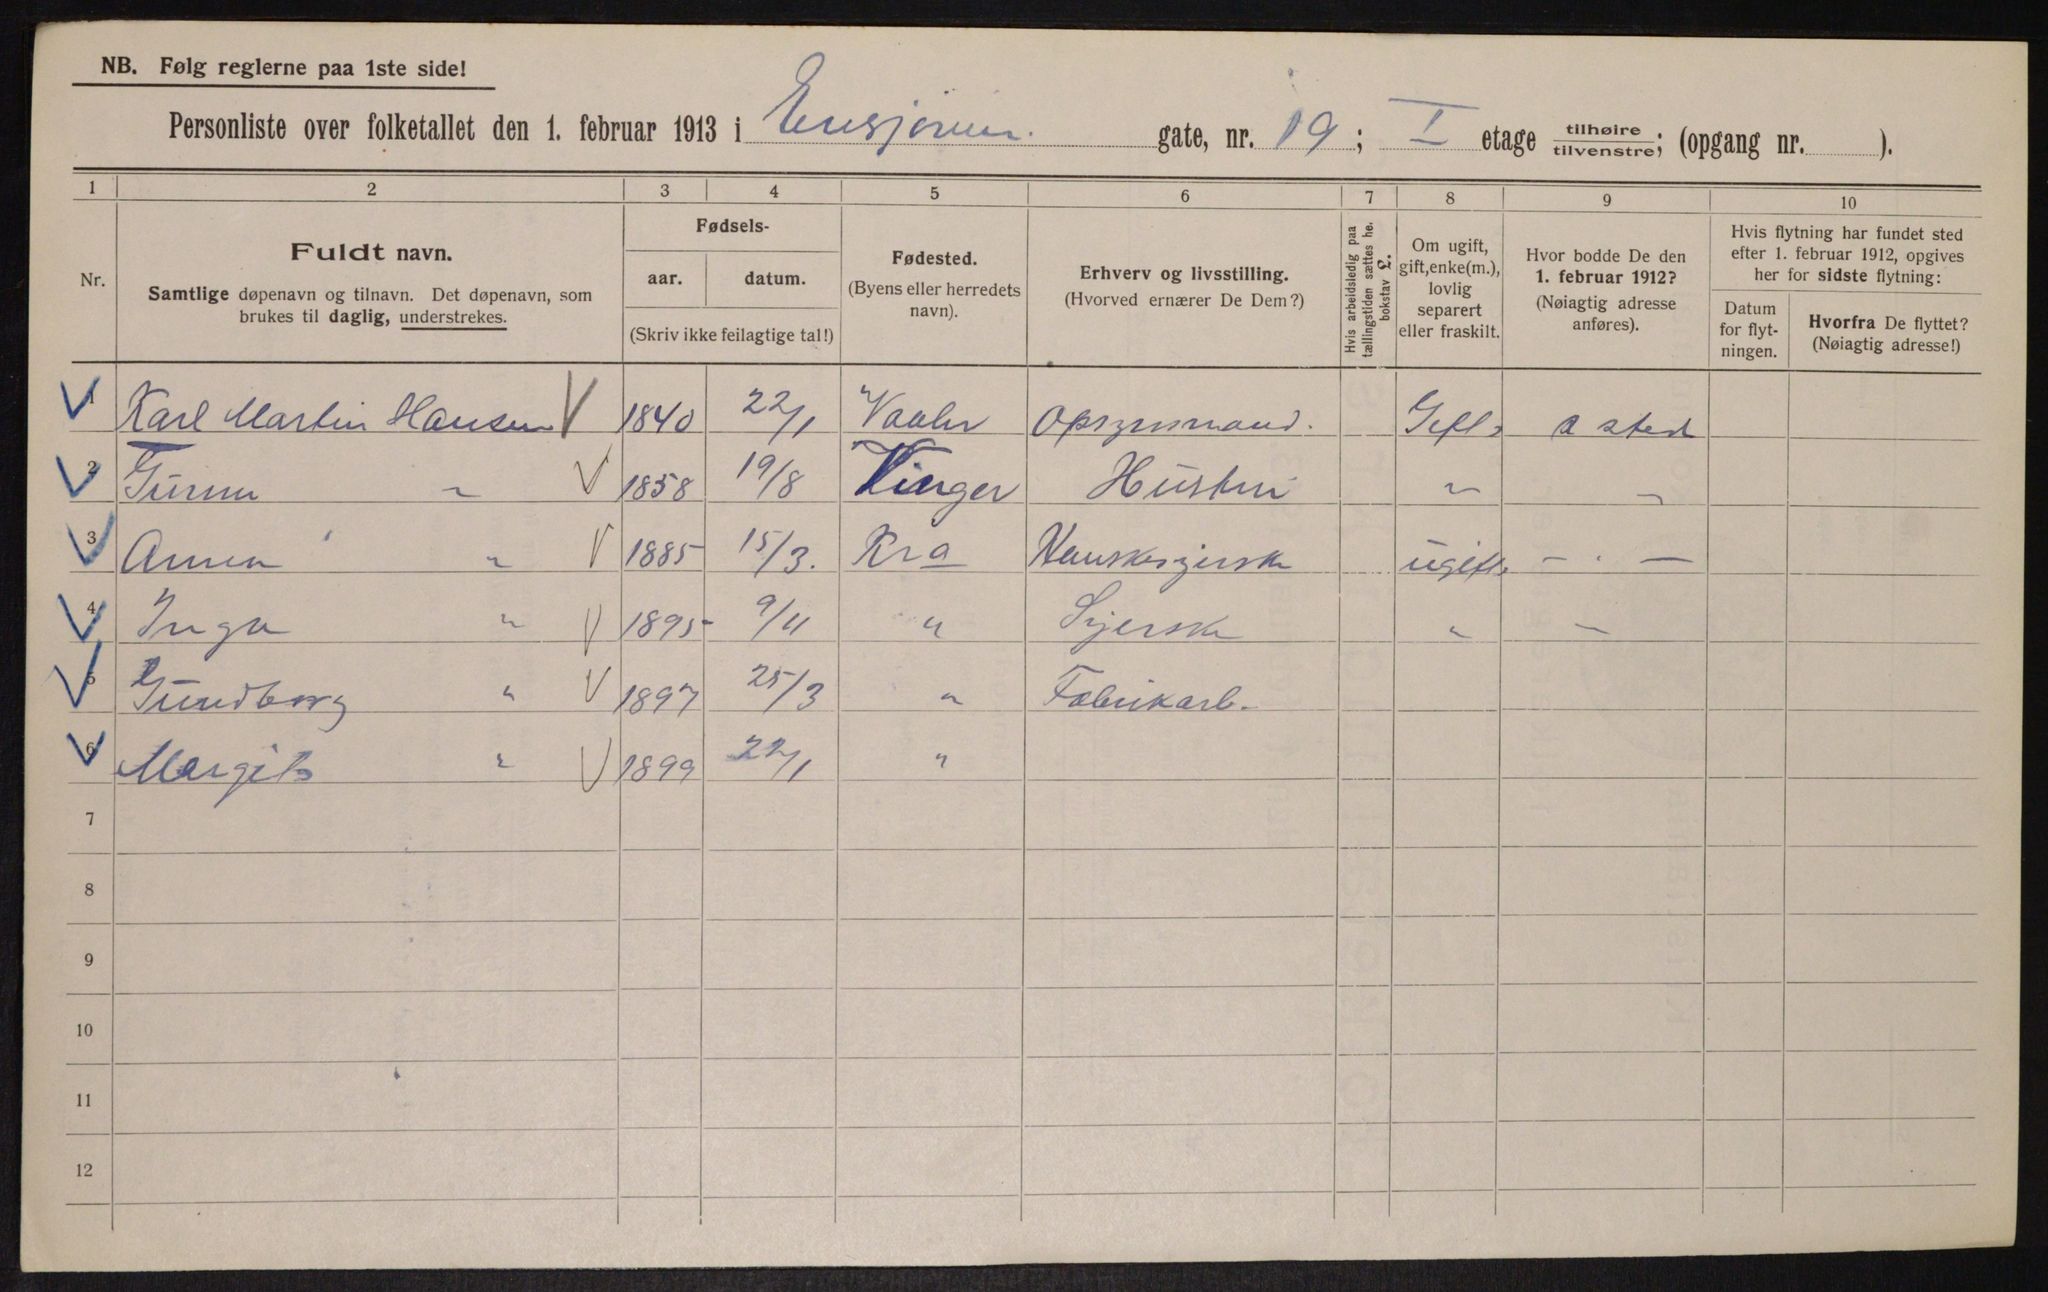 NB. Følg reglerne paa 1ste side!
Personliste over folketallet den 1. februar 1913 i Ensjøvn. gate, nr. 19; I etage tilhøire/tilvenstre; (opgang nr. ).
1 2 3 4 5 6 7 8 9 10
Nr.
Fuldt navn.
Samtlige døpenavn og tilnavn. Det døpenavn, som
brukes til daglig, understrekes.
Fødsels-
aar. datum.
(Skriv ikke feilagtige tal!)
Fødested.
(Byens eller herredets
navn).
Erhverv og livsstilling.
(Hvorved ernærer De Dem?)
Hvis arbeidsledig paa
tællingstiden sættes he.
bokstav L.
Om ugift,
gift, enke(m.),
lovlig
separert
eller fraskilt.
Hvor bodde De den
1. februar 1912?
(Nøiagtig adresse
anføres).
Hvis flytning har fundet sted
efter 1. februar 1912, opgives
her for sidste flytning:
Datum
for flyt-
ningen.
Hvorfra De flyttet?
(Nøiagtig adresse!)
1 Karl Martin Hansen 1840 22/1 Vaaler Opsynsmand. Gift s sted
2 " 1858 19/8 Vinger Hustru " "
3 Anna " 1885 15/3. Kra ugift - . -
4 Inga " 1895 9/11 " Syerske " -
5 Gundborg " 1897 25/3 " Fabrikarb.
6 Margit " 1899 22/1 "
7
8
9
10
11
12